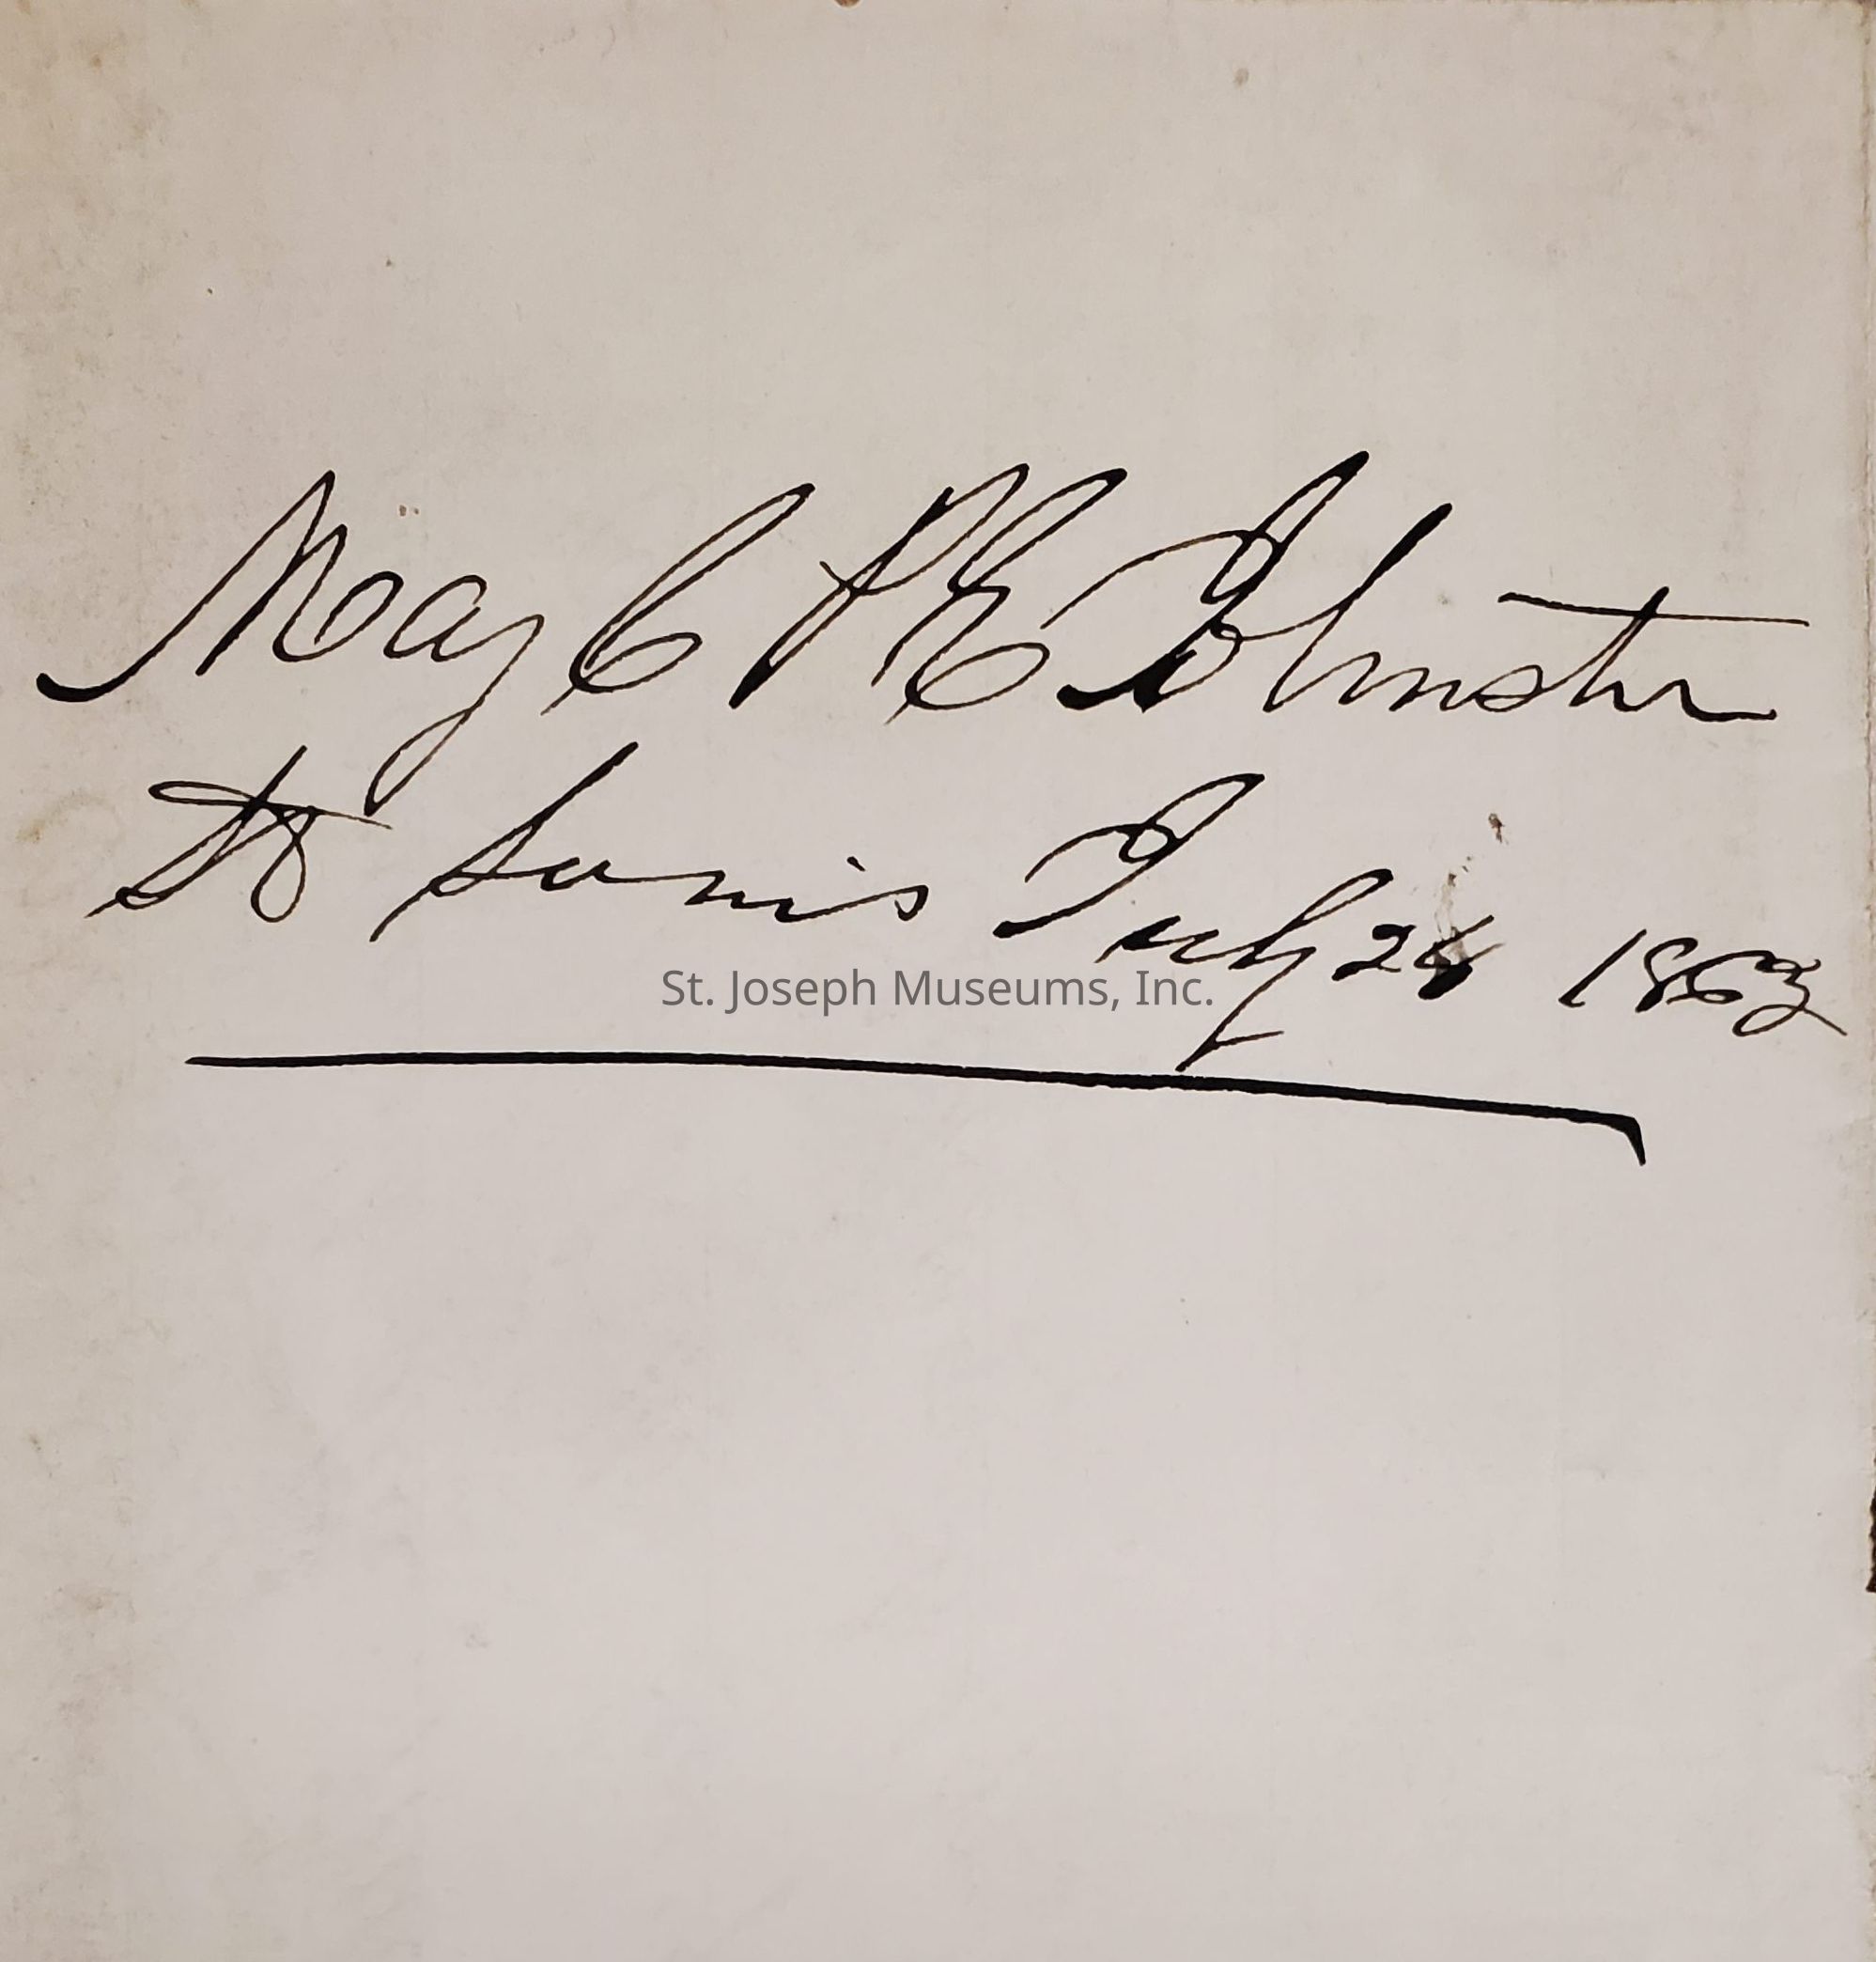 May C H E Johnston
St Louis July 24 1863
St. Joseph Museums, Inc.